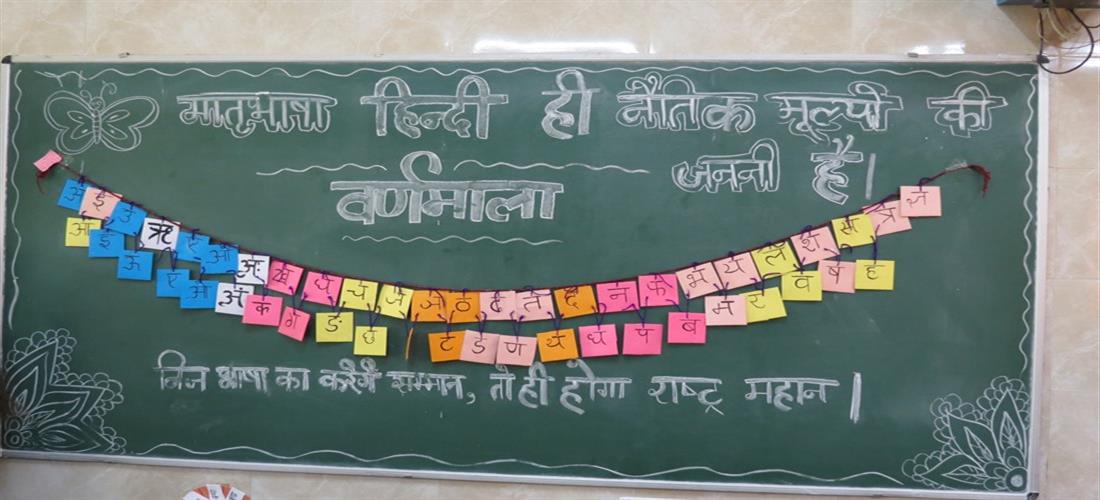 मातृभाषा हिन्दी ही नैतिक मूल्यों की
जननी है।
वर्णमाला
अ ई उ ऋ ऐ औ अः ख घ च ज ञ ठ ढ त द न फ भ य ल श स त्र ज्ञ
आ इ ऊ ए ओ अं क ग ङ छ ट ड ण थ ध प ब म र व ष ह
निज भाषा का करेंगे सम्मान, तो ही होगा राष्ट्र महान।